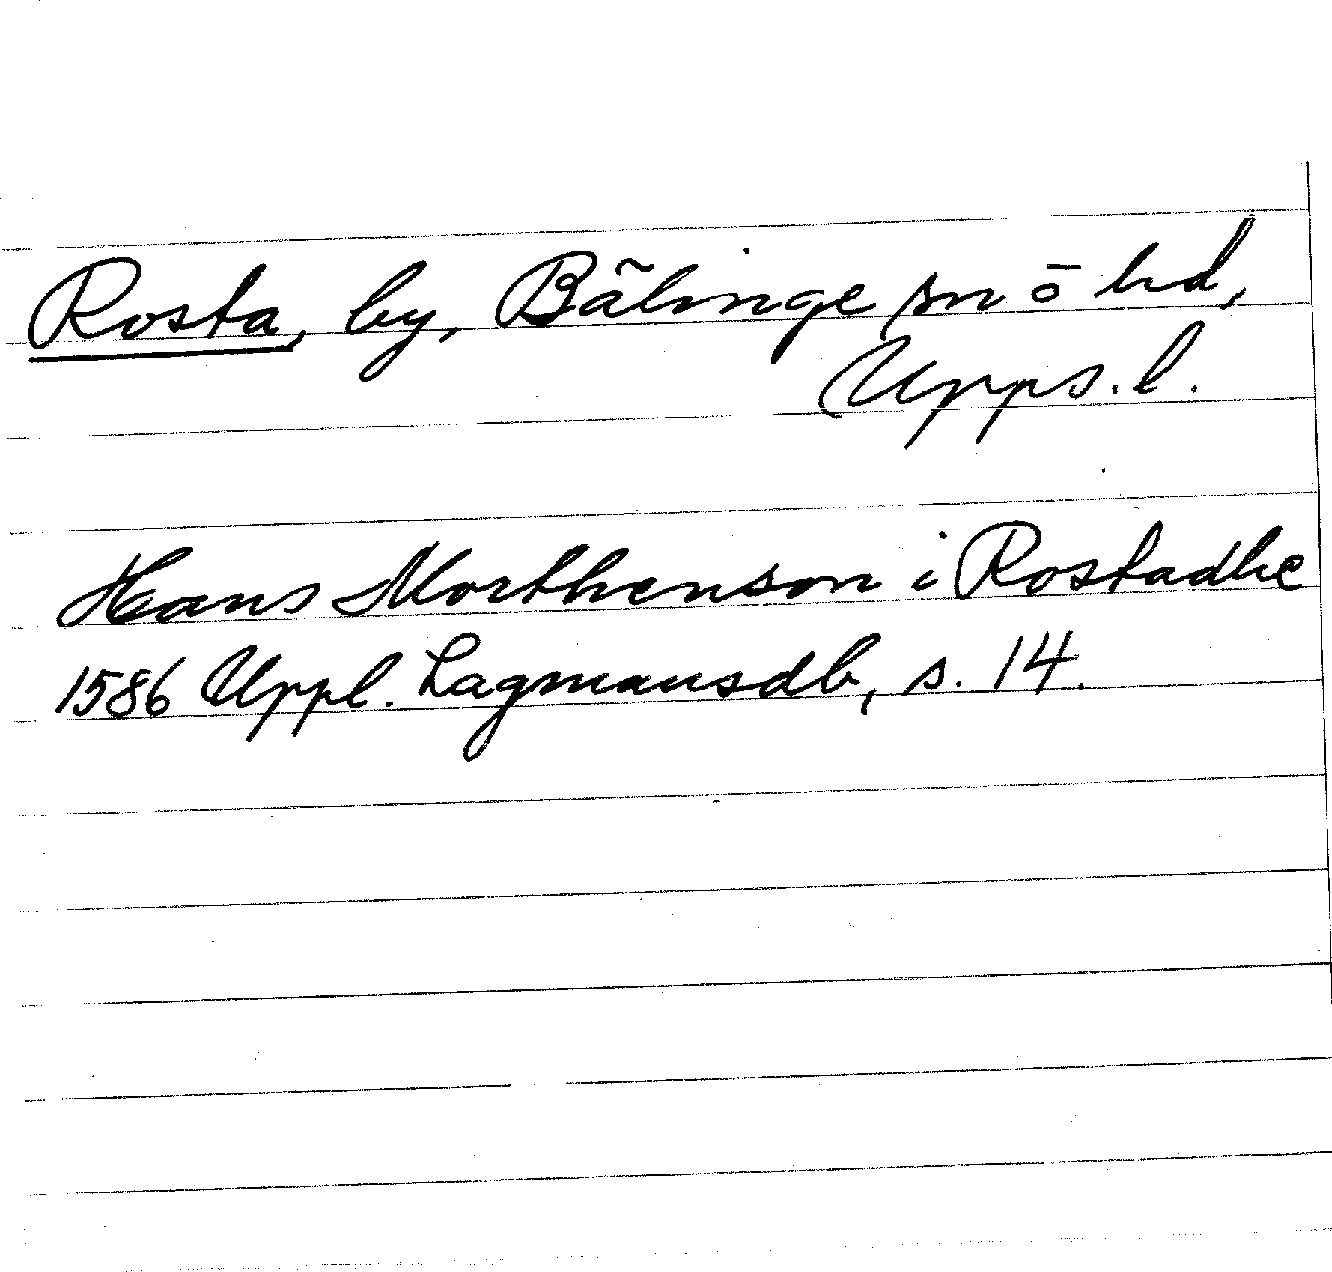 Rosta, by, Bälinge sn o hd,
Upps. l.
Hans Morthenson i Rostadhe
1586 Uppl. Lagmansdb, s. 14.